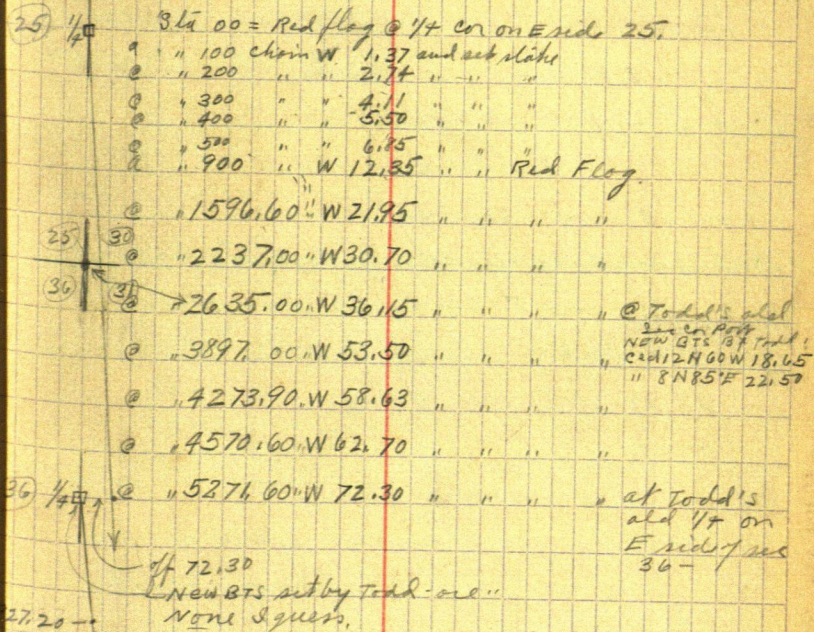 25 1/4 Sta 00 = Red flag @ 1/4 cor on E side 25.
@ " 100 chain W 1.37 and set stake
@ " 200 " " 2.74 " " "
@ " 300 " " 4.11 " " "
@ " 400 " " 5.50 " " "
@ " 500 " " 6.85 " " "
@ " 900 " W 12.35 " " Red Flag.
@ " 1596.60 " W 21.95 " " " "
25 30
@ " 2237.00 " W 30.70 " " " "
36 31
@ " 2635.00 " W 36.15 " " " " @ Todd's old
Sec Cor Post
NEW BTS By Todd
@ " 3897.00 " W 53.50 " " " " Ced 12 N60W 18.65
" 8 N85°E 22.50
@ " 4273.90 " W 58.63 " " " "
@ " 4570.60 " W 62.70 " " " "
36 1/4 @ " 5271.60 " W 72.30 " " " " at Todd's
old 1/4 on
E side of sec
36 -
off 72.30
New BTS set by Todd
None I guess.
27.20 -